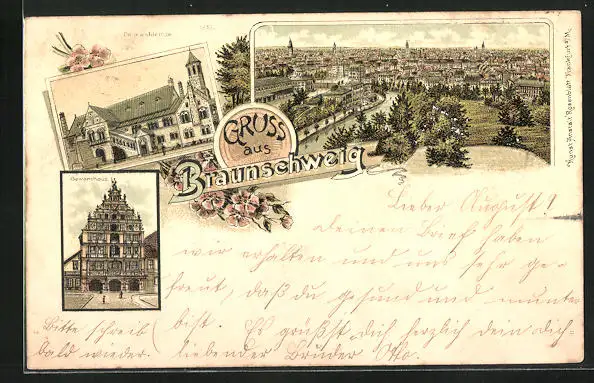 Gewandhaus
GRUSS
aus
Braunschweig
Kunst-Anstalt Rosenblatt Frankfurt a/M.
Lieber August!
deinen Brief haben
wir erhalten und uns sehr ge-
freut, daß du gesund und munter
bist. Es grüßt dich herzlich dein dich
liebender Bruder Otto.
Bitte schreib
bald wieder.